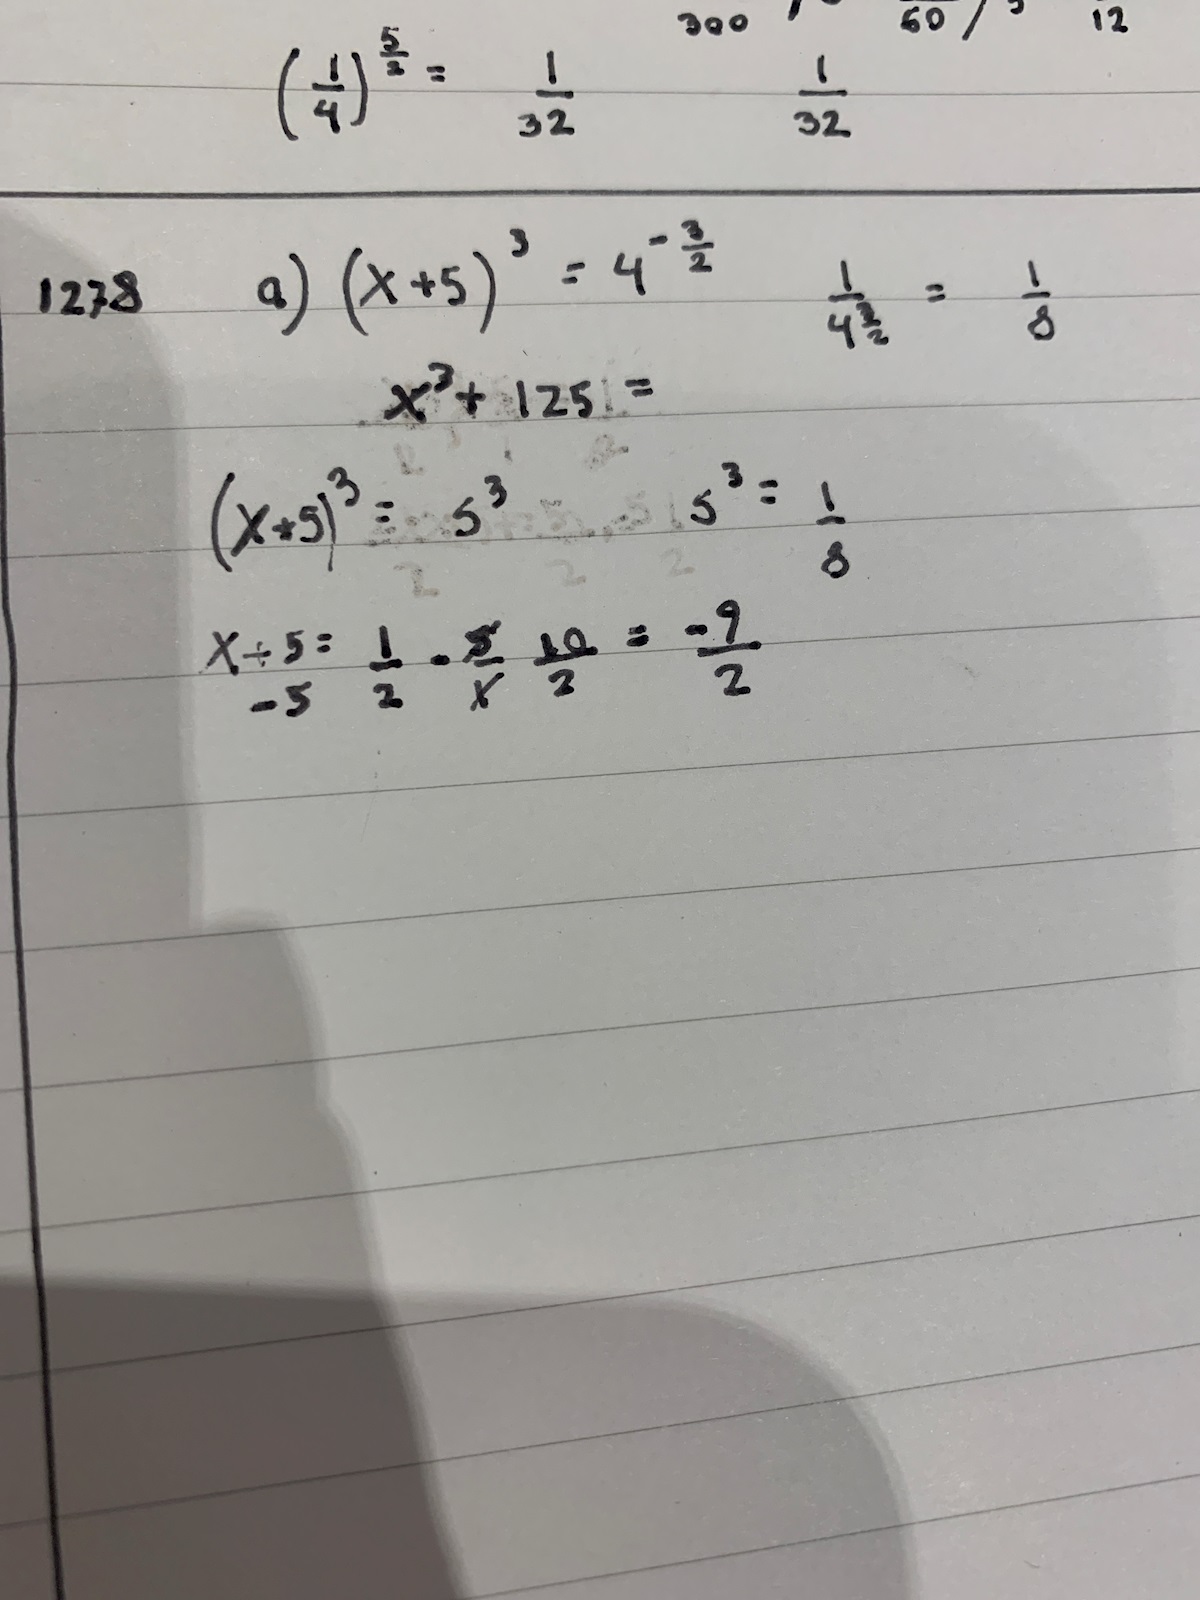 300 60 / 3 12
(1/4)^(5/2) = 1/32 1/32
1278 a) (x+5)^3 = 4^(-3/2) 1/4^(3/2) = 1/8
x^3 + 125 =
(x+5)^3 = 5^3 5^3 = 1/8
x + 5 = 1/2 - 5/1 10/2 = -9/2
-5